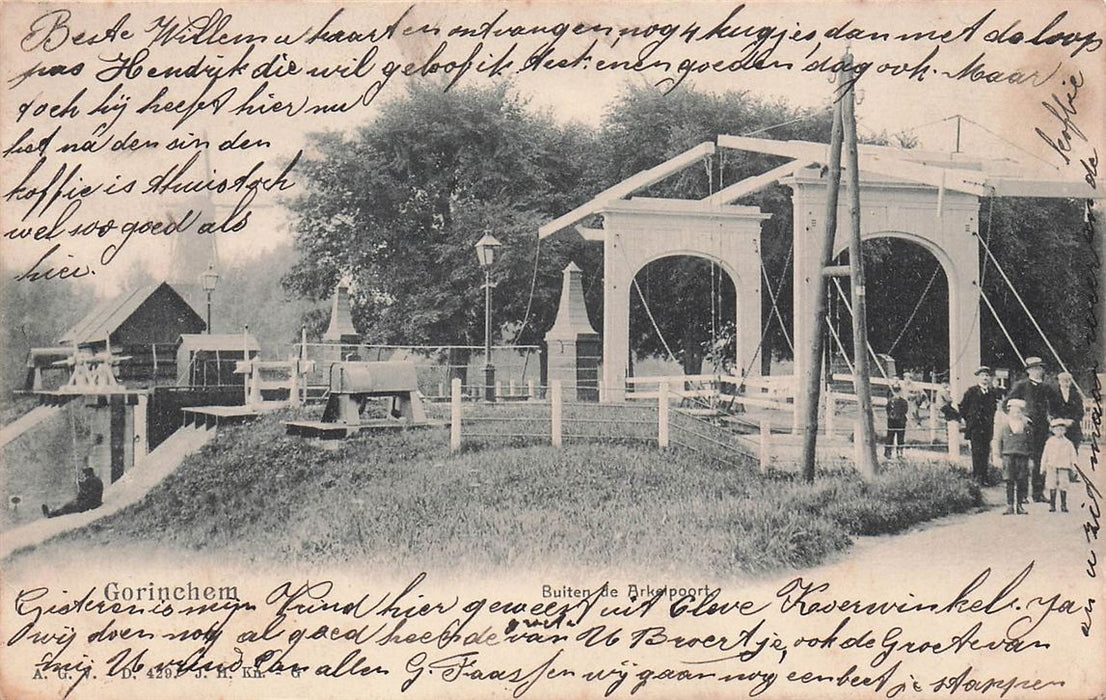 Beste Willem u kaart en ontvangen, nog 4 kugjes, dan met de loop
pas Hendrijk die wil geloof ik best en en goeden dag ook. Maar
doch hij heeft hier nu
het na den sin den
koffie is thuis toch
wel zoo goed als
hier.
koffie
de
u zit maar
aan
Gorinchem
Buiten de Arkelpoort
Gisteren is mijn Vrind hier geweest uit Cleve Keverwinkel. Ja
wij doen nog al goed heeft de groete van U Broertje, ook de Groete van
mij U vrind Van Allen G. Faassen wij gaan nog een beetje stappen
A. G. V. D. 429. J. H. Kn. - G